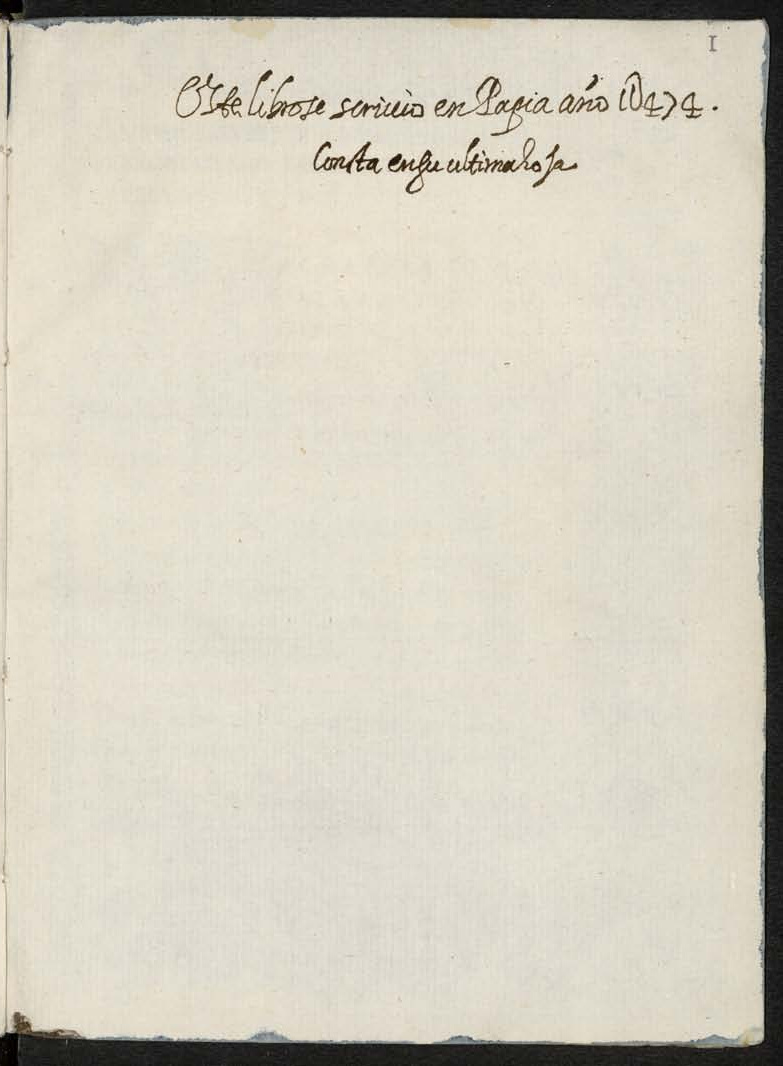 1
Este libro se scriuio en Papia año 1U474.
Consta en su ultima hoja